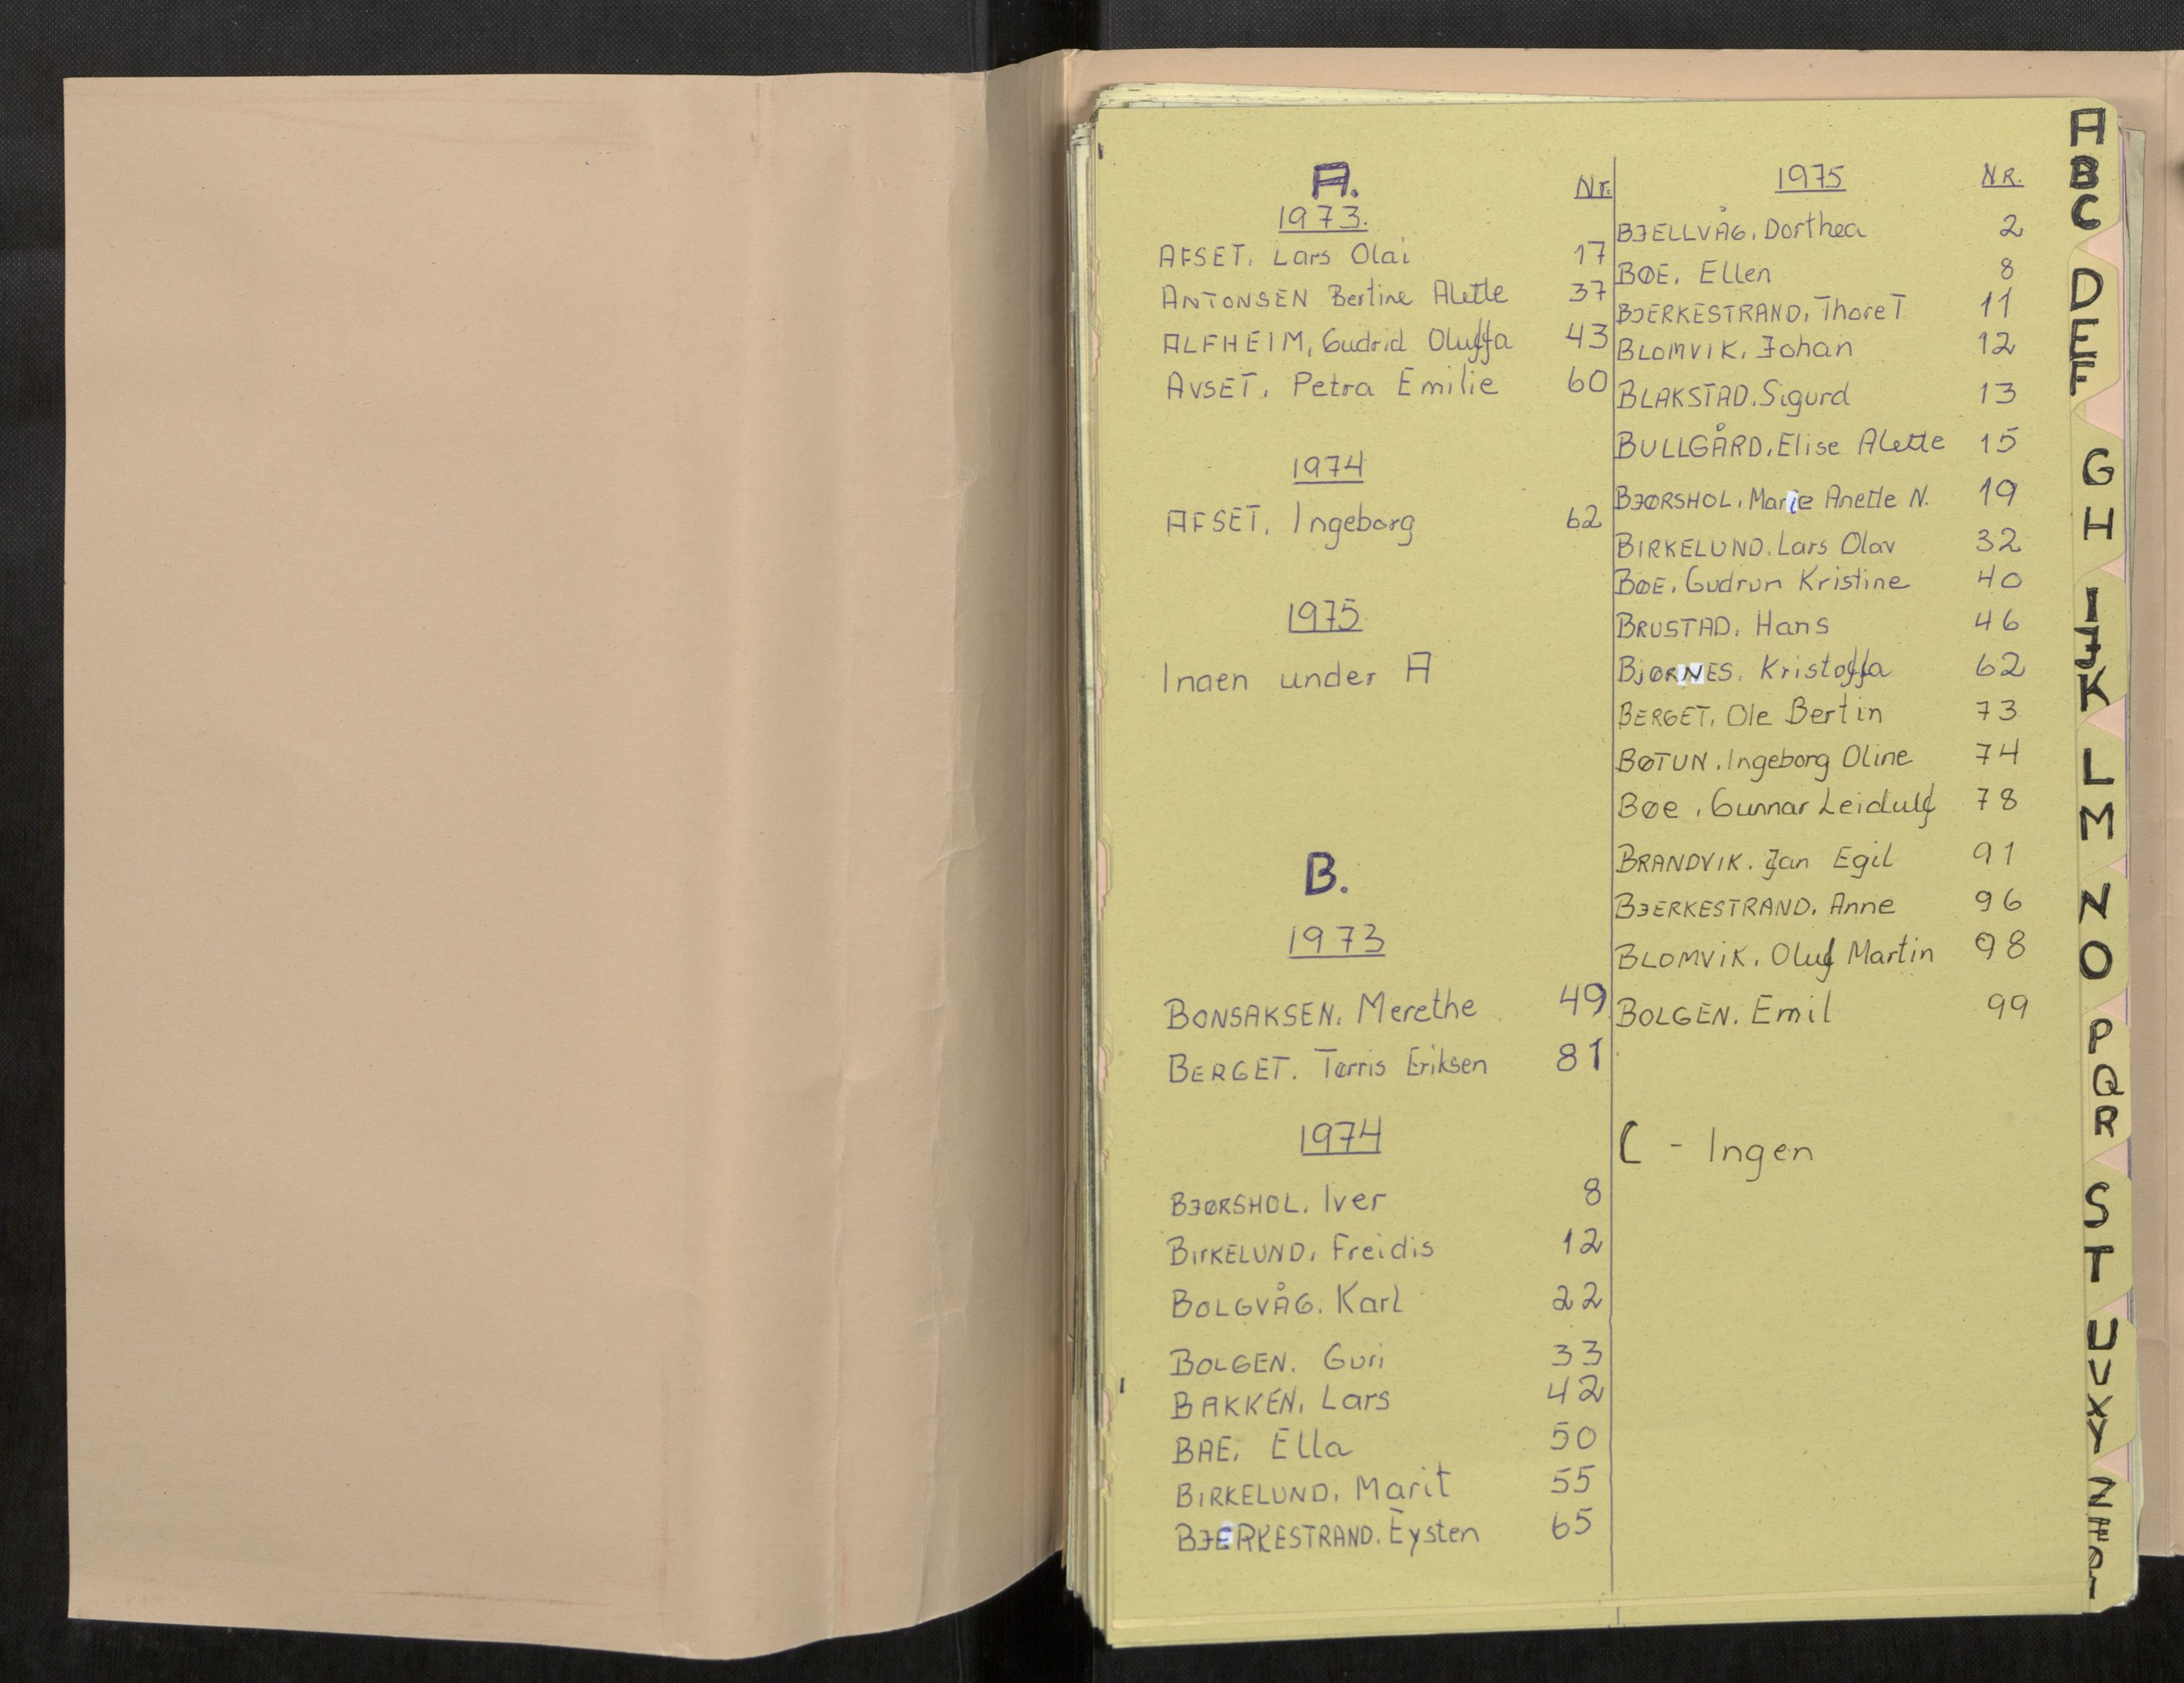 A.
Nr.
1973.
AFSET, Lars Olai 17
ANTONSEN Bertine Alette 37
ALFHEIM, Gudrid Oluffa 43
AVSET, Petra Emilie 60
1974
AFSET, Ingeborg 62
1975
Ingen under A
B.
1973
BONSAKSEN, Merethe 49
BERGET. Tørris Eriksen 81
1974
BJØRSHOL, Iver 8
BIRKELUND, Freidis 12
BOLGVÅG. Karl 22
BOLGEN. Guri 33
BAKKEN, Lars 42
BAE, Ella 50
BIRKELUND, Marit 55
BJERKESTRAND. Eysten 65
1975 NR.
BJELLVÅG, Dorthea 2
BØE, Ellen 8
BJERKESTRAND, Thore T 11
BLOMVIK, Johan 12
BLAKSTAD, Sigurd 13
BULLGÅRD, Elise Alette 15
BJØRSHOL, Marie Anette N. 19
BIRKELUND. Lars Olav 32
BØE, Gudrun Kristine 40
BRUSTAD, Hans 46
BJØRNES, Kristoffa 62
BERGET, Ole Bertin 73
BØTUN, Ingeborg Oline 74
BØe, Gunnar Leidulf 78
BRANDVIK. Jan Egil 91
BJERKESTRAND. Anne 96
BLOMVIK, Oluf Martin 98
BOLGEN. Emil 99
C - Ingen
A
B
C
D
E
F
G
H
I
J
K
L
M
N
O
P
Q
R
S
T
U
V
X
Y
Z
Æ
Ø